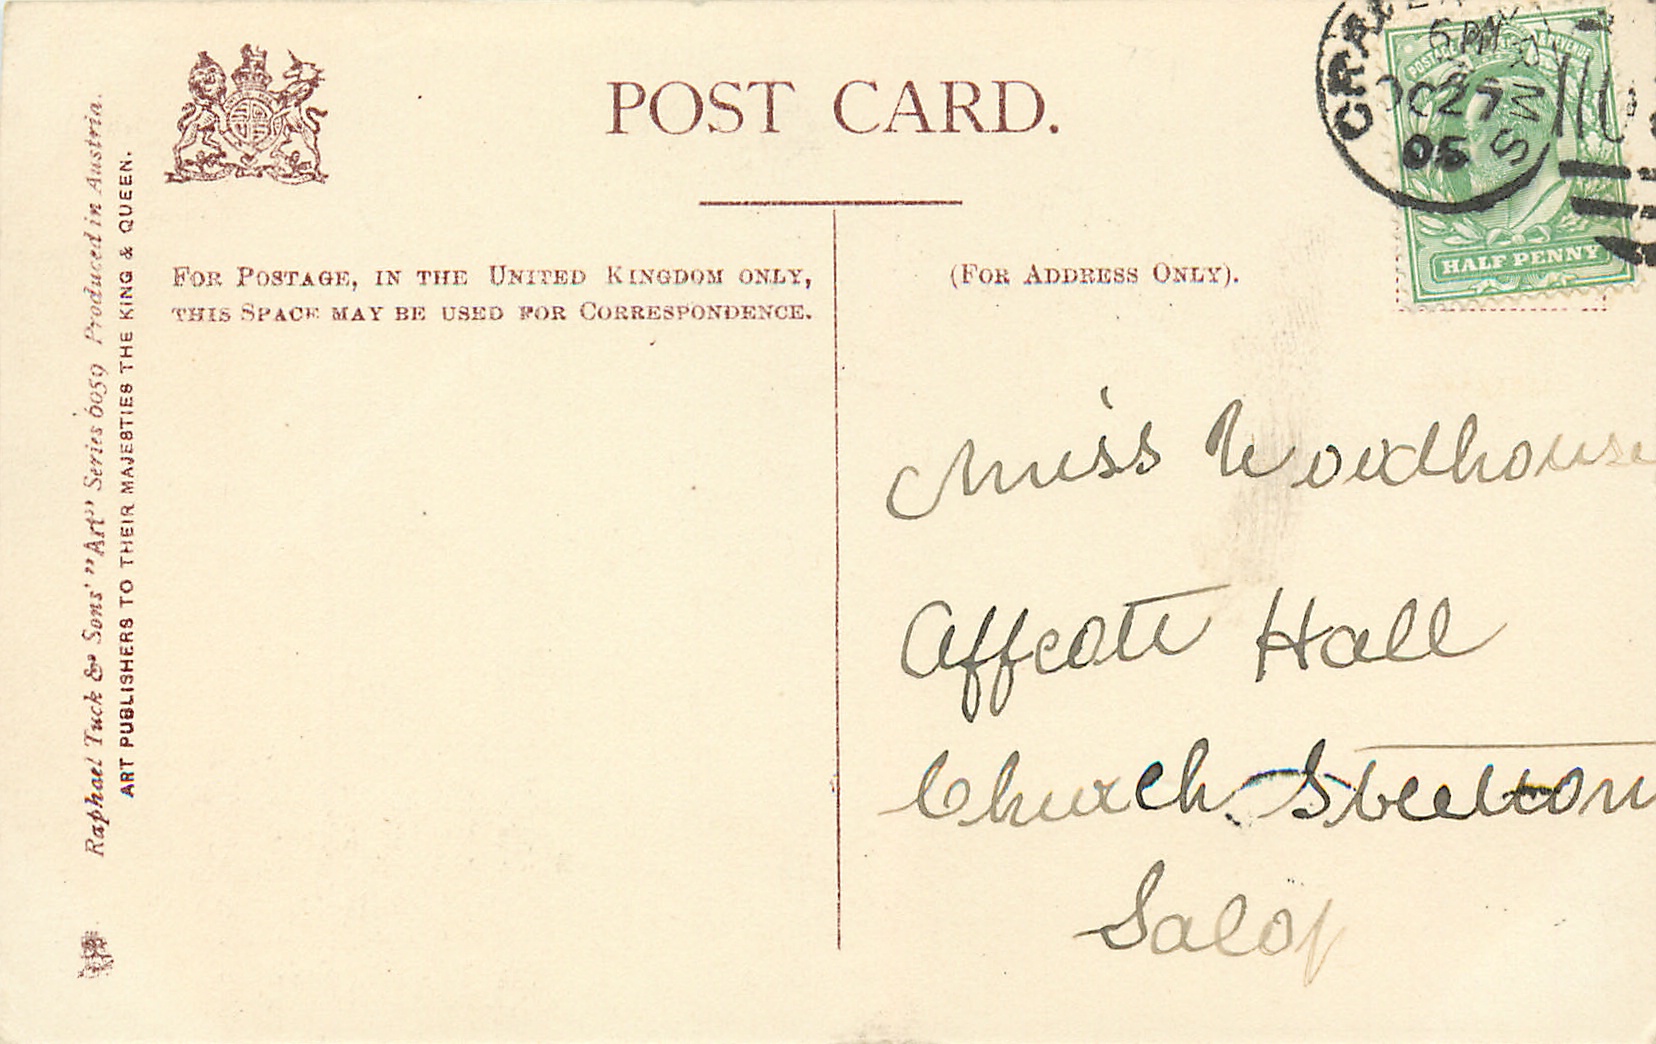 POST CARD.
FOR POSTAGE, IN THE UNITED KINGDOM ONLY,
THIS SPACE MAY BE USED FOR CORRESPONDENCE.
(FOR ADDRESS ONLY).
Raphael Tuck & Sons' "Art" Series 6059 Produced in Austria.
ART PUBLISHERS TO THEIR MAJESTIES THE KING & QUEEN.
POSTAGE & REVENUE
HALF PENNY
6 PM
OC 27
05
Miss Woodhouse
Affcott Hall
Church Stretton
Salop